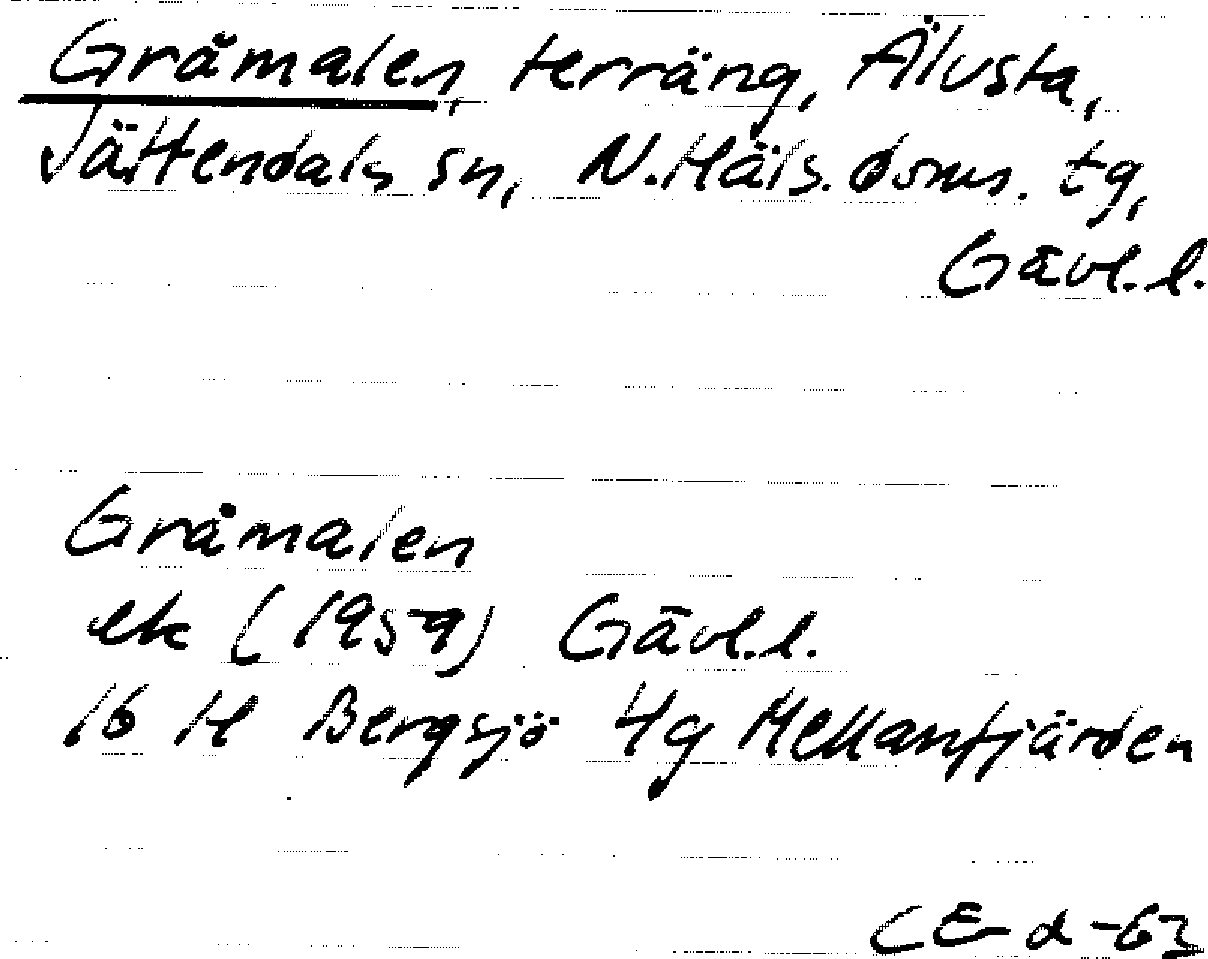 Gråmalen, terräng, Älvsta,
Jättendals sn, N.Häls. doms. tg,
Gävl.l.
Gråmalen
ek (1959) Gävl.l.
16 H Bergsjö 4g Mellanfjärden
CE d -63